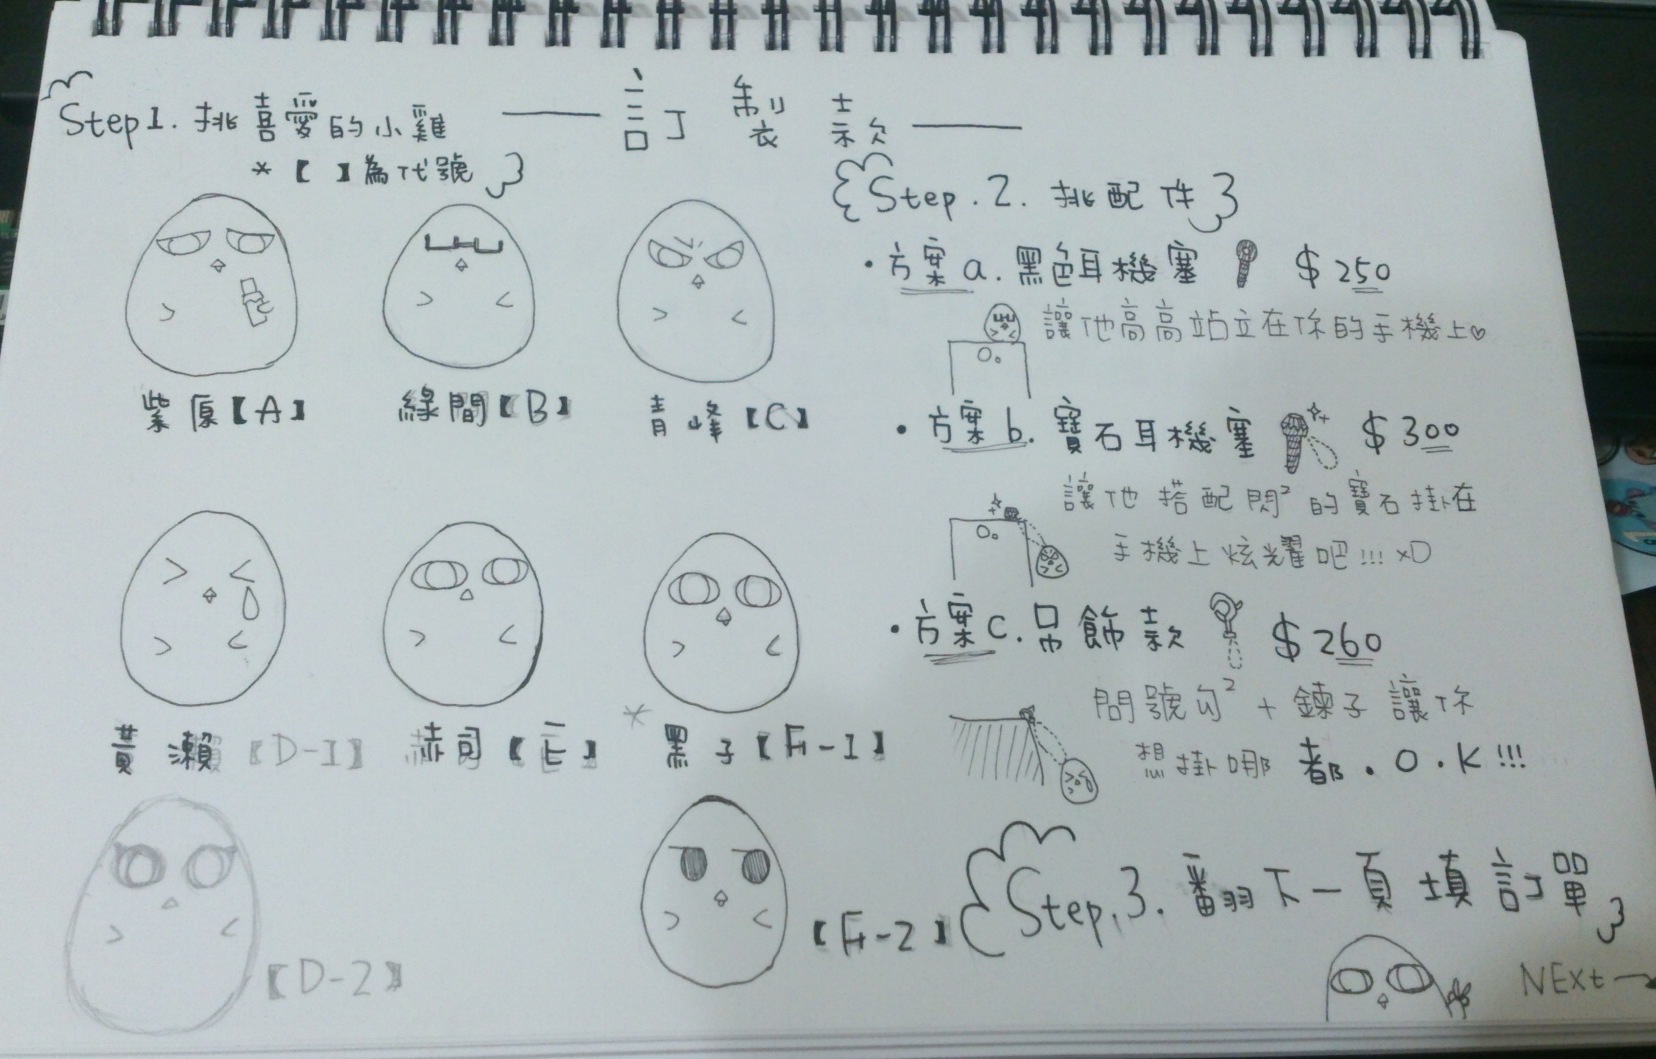 訂製款
Step1. 挑喜愛的小雞
*【 】為代號
紫原【A】
綠間【B】
青峰【C】
黃瀨【D-1】
赤司【E】
*黑子【F-1】
【D-2】
【F-2】
Step.2. 挑配件
・方案a. 黑色耳機塞 $250
讓他高高站立在你的手機上♡
・方案b. 寶石耳機塞 $300
讓他搭配閃²的寶石掛在
手機上炫耀吧!!! xD
・方案c. 吊飾款 $260
問號勾² + 鍊子讓你
想掛哪都.O.K!!!
Step.3. 翻下一頁填訂單
NExt→